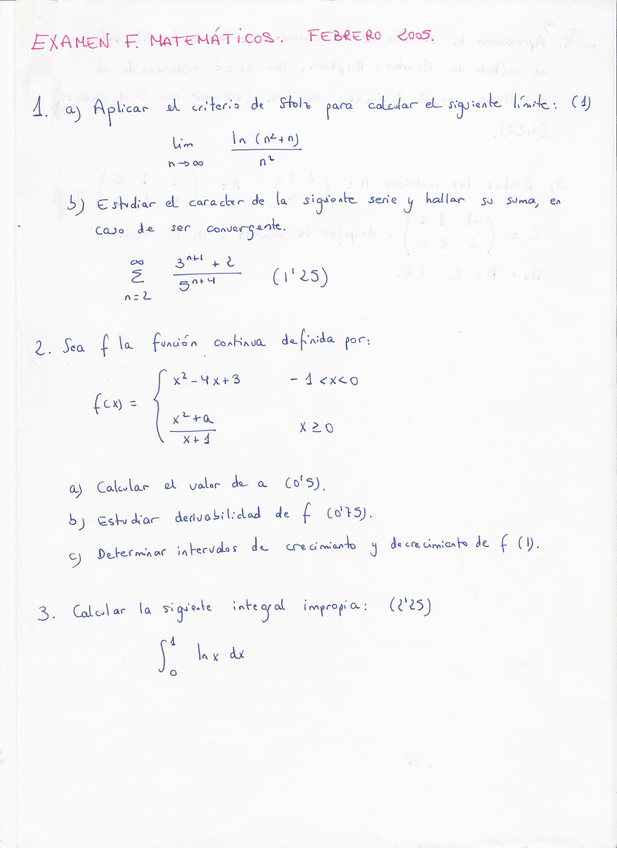 EXAMEN F. MATEMÁTICOS. FEBRERO 2005.
1. a) Aplicar el criterio de Stolz para calcular el siguiente límite: (1)
lim n→∞ ln (n²+n) / n²
b) Estudiar el caracter de la siguiente serie y hallar su suma, en
caso de ser convergente.
∞ Σ n=2 3ⁿ⁺¹ + 2 / 5ⁿ⁺⁴ (1'25)
2. Sea f la función continua definida por:
f(x) = { x² - 4x + 3 -1 < x < 0
x² + a / x + 1 x ≥ 0
a) Calcular el valor de a (0'5).
b) Estudiar derivabilidad de f (0'75).
c) Determinar intervalos de crecimiento y decrecimiento de f (1).
3. Calcular la siguiente integral impropia: (2'25)
∫₀¹ ln x dx